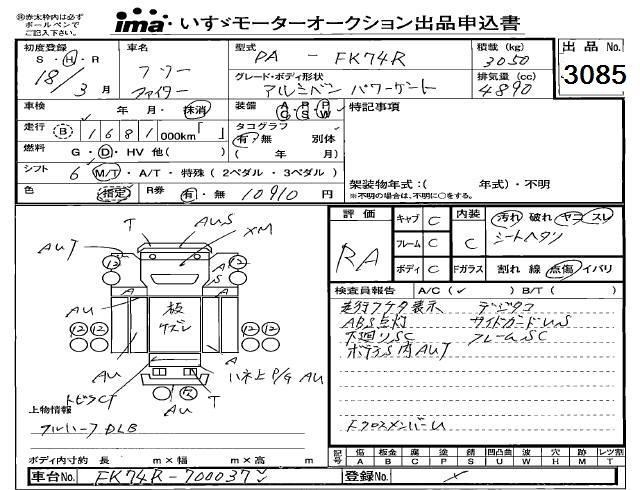 ㊟赤太枠内は必ず
ボールペンで
ご記入下さい。
ima いすゞモーターオークション出品申込書
初度登録 車名 型式 PA - FK74R 積載 (kg) 3050 出品 No.
S・H・R 18/3 月 グレード・ボディ形状 排気量 (cc) 3085
アルミバン パワーゲート 4890
車検 年 月・抹消 装備 A P P C S W 特記事項
走行 B 1681 000km「 」 タコグラフ 有・無 別体
燃料 G・D・HV 他( ) ( 年 月)
シフト 6 M/T・A/T・特殊 (2ペダル・3ペダル) 架装物年式:( 年式)・不明
色 指定 R券 有・無 10910 円 ※不明の場合は、不明に○をする。
評価 キャブ C 内装 汚れ 破れ ヤニ スレ
RA フレーム C C シートヘタリ
ボディ C Fガラス 割れ 線 点傷 イバリ
検査員報告 A/C (✓) B/T ( )
走行フケタ表示 デジタコ
ABS点灯 サイドガードU,S
下廻りSC フレームSC
ボデーS内AU
FクロスメンバーU
T AUS XM
AUT 12 12 A AS
A A
AU 板 ズレ
12 12 12 12
AU A ハネ上P/G AU
トビラCT T
AU
上物情報
フルハーフ DLB
ボディ内寸約 長 m×幅 m×高 m
記号 傷 板金 腐 塗 錆 凹凸曲 波 穴 傷 レツ割
A B C P S U W H M T
車台No. FK74R-700037 登録No.